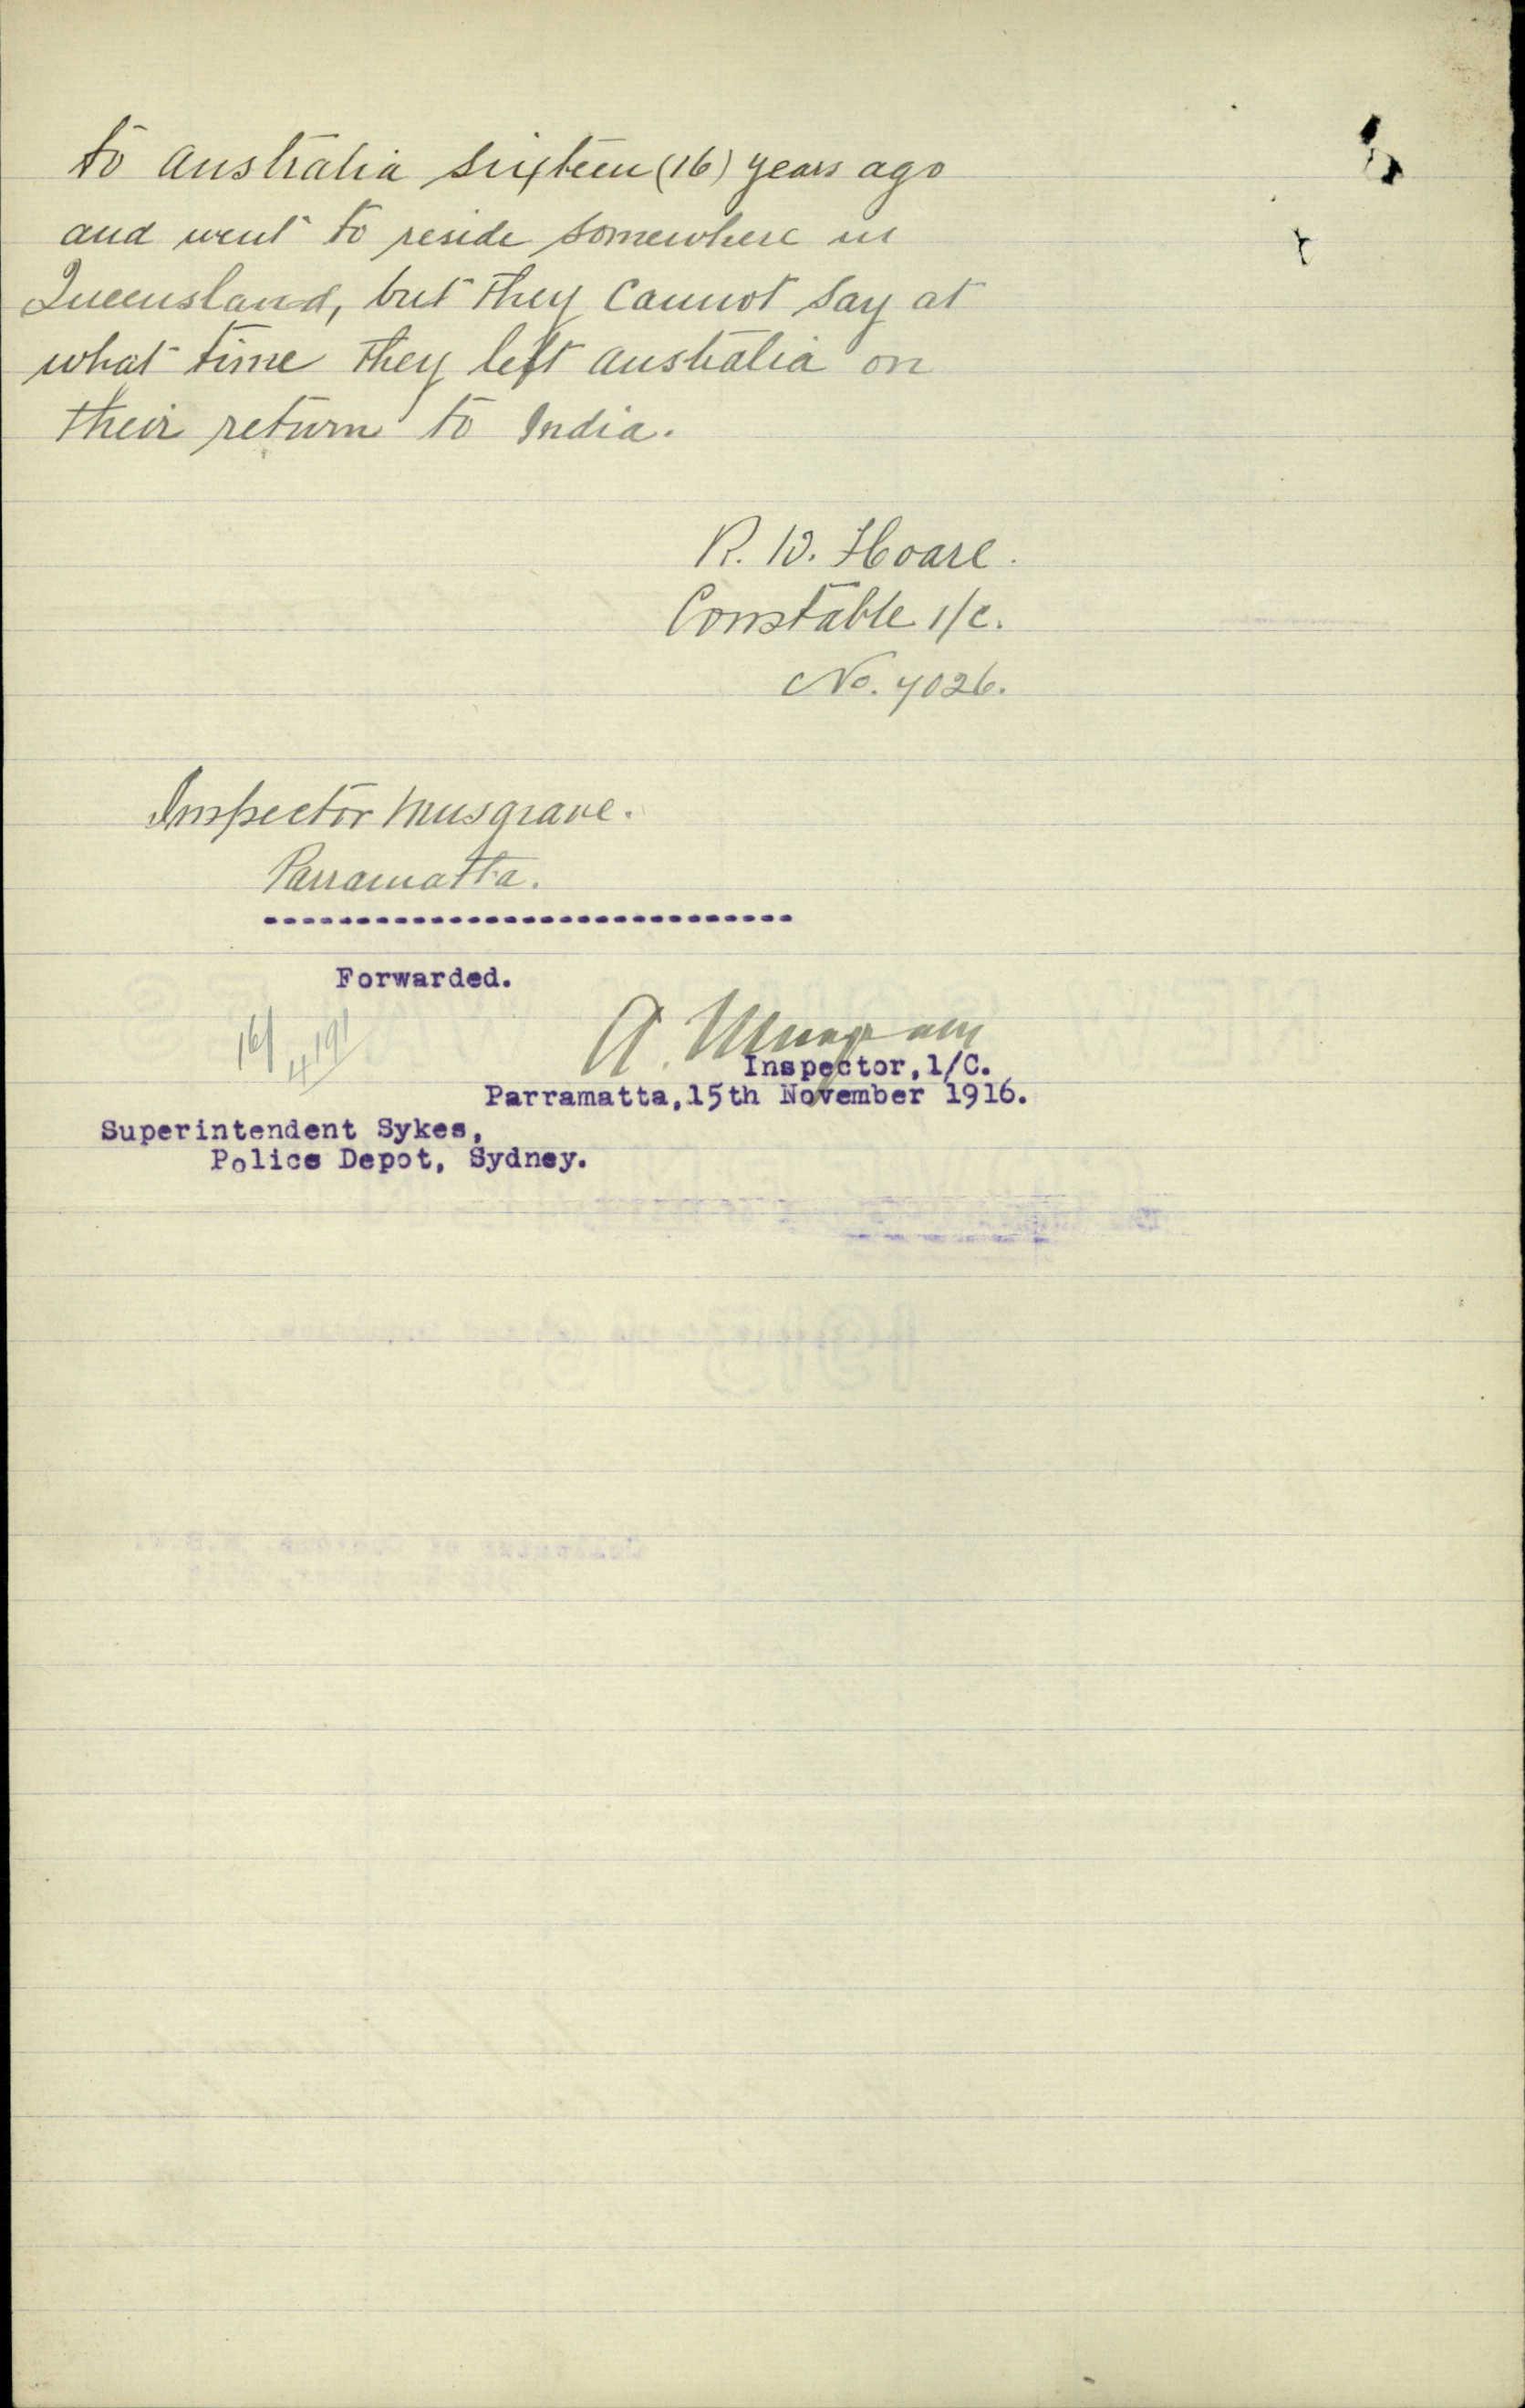 to Australia sixteen (16) years ago
and went to reside somewhere in
Queensland, but they cannot say at
what time they left Australia on
their return to India.
R. W. Hoare.
Constable 1/c.
No. 7026.
Inspector Musgrave.
Parramatta.
Forwarded.
A. Musgrave
Inspector, 1/C.
Parramatta, 15th November 1916.
Superintendent Sykes,
Police Depot, Sydney.